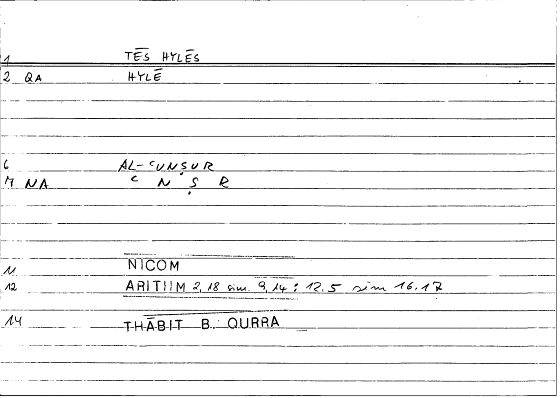 1 TĒS HYLĒS
2 QA HYLĒ
6 AL-ʿUNṢUR
M NA ʿ N Ṣ R
11 NICOM
12 ARITIIM 2,18 sim. 9,14 ; 12.5 sim 16.17
14 THĀBIT B. QURRA